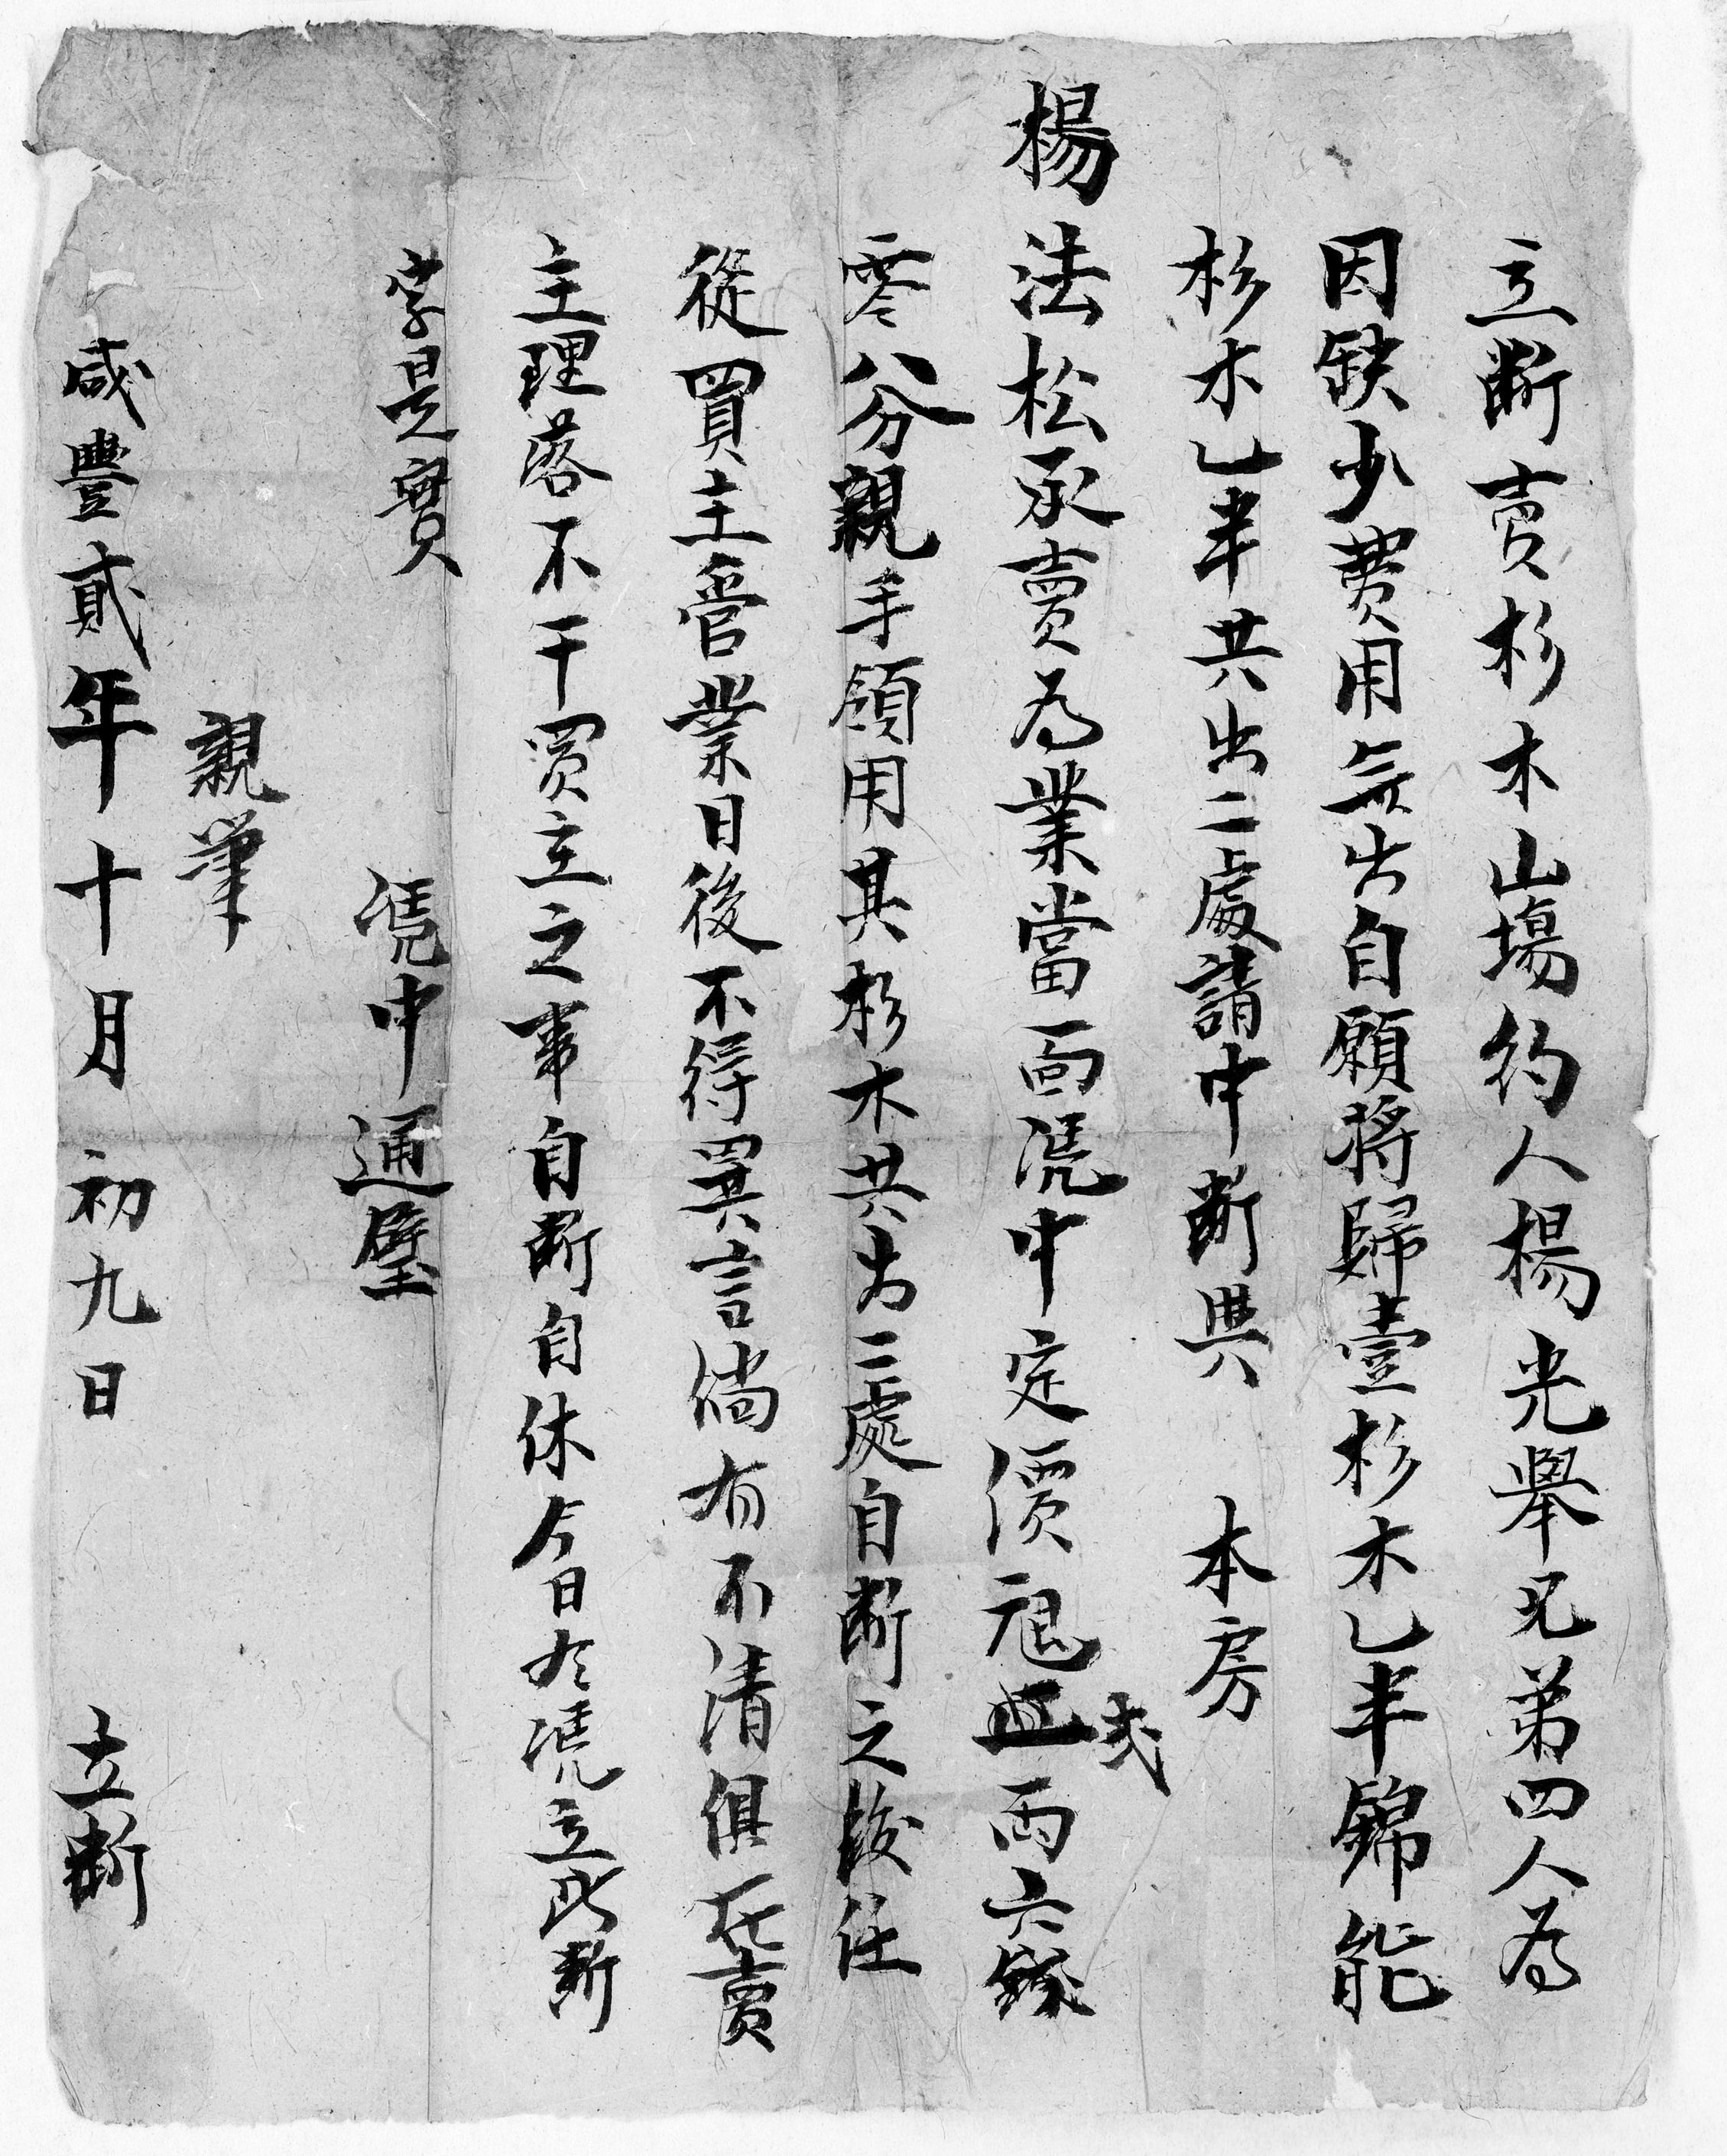 立断賣杉木山塲約人楊光舉兄弟四人為
因缺少費用無出自願將歸壹杉木乚半錦能
杉木乚半共出二處請中断與 本房
楊法松承賣為業當面憑中定價艮弍両六錢
零八分親手領用其杉木共出二處自断之後任
從買主管業日後不得異言倘有不清俱在賣
主理落不干買主之事自断自休今日欠憑立此断
字是實
憑中 通璧
親筆
咸豐貳年十月初九日 立断